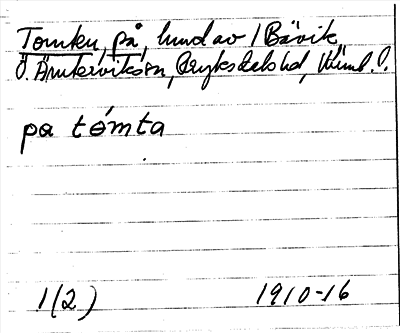 Tomku, på, hund av / Bävik
Ö. Ämtervikssn, Fryksdals hd, Värml. l.
pa tómta
1(2) 1910-16